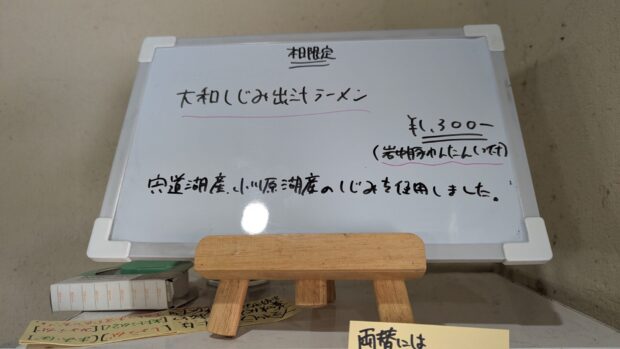 本日限定
大和しじみ出汁ラーメン
¥1,300-
(岩中豚わんたん入りです)
宍道湖産、小川原湖産のしじみを使用しました。
両替には